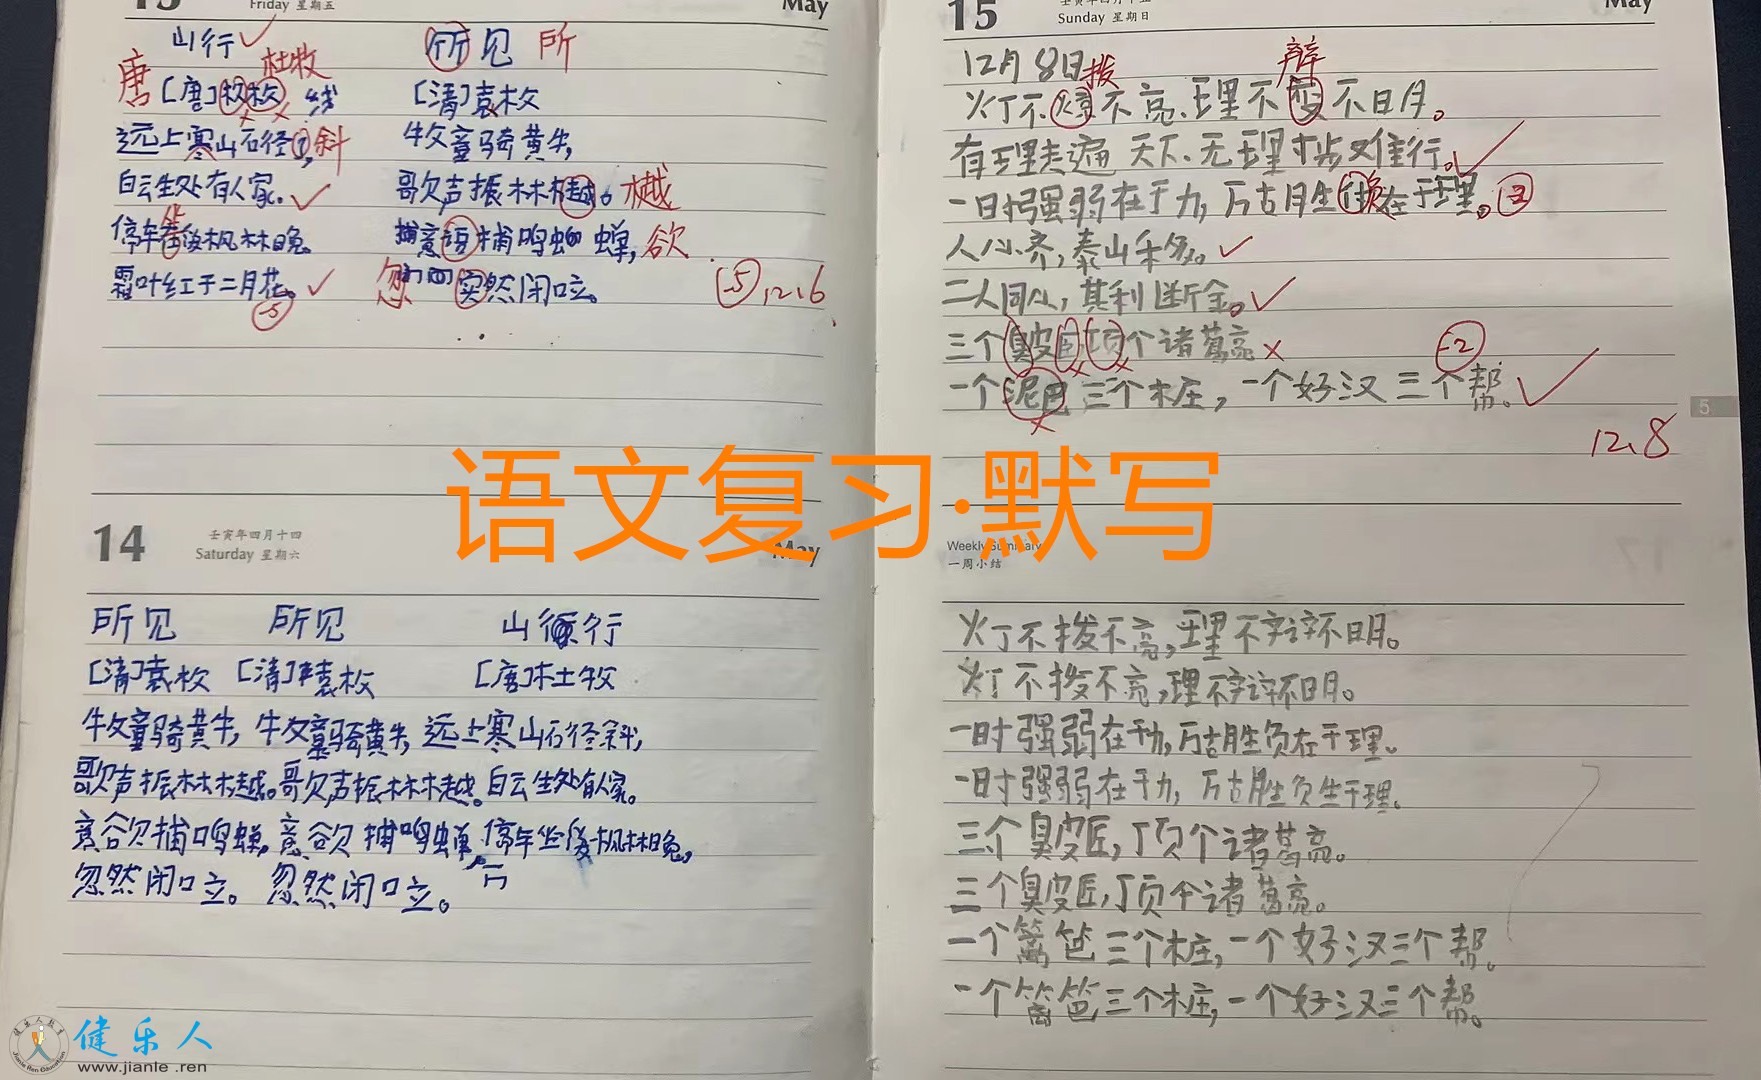 Friday 星期五
May
山行 所见 所
唐 杜牧
[唐]牧 [清]袁枚
远上寒山石径 斜 牧童骑黄牛,
白云生处有人家. 歌声振林樾。樾
停车 枫林晚 意 捕鸣 蝉,欲
霜叶红于二月花。 忽 然闭口立。
-5
-5 12.6
14
壬寅年四月十四
Saturday 星期六
May
所见 所见 山行
[清]袁枚 [清]袁枚 [唐]杜牧
牧童骑黄牛, 牧童骑黄牛, 远上寒山石径斜,
歌声振林樾。歌声振林樾。白云生处有人家。
意欲捕鸣蝉, 意欲捕鸣蝉, 停车坐 枫林晚,
忽然闭口立。 忽然闭口立。
15
Sunday 星期日
May
12月8日 拨 辩
灯不 不亮、理不 不日月。
有理走遍天下、无理寸步又隹行。
一时强弱在于力, 万古月生 负在于理。
人心齐,泰山禾多。
二人同心,其利断金。
三个臭皮 顶个诸葛亮
-2
一个泥巴三个木庄,一个好汉三个帮。
12.8
5
语文复习·默写
Weekly Summary
一周小结
灯不拨不亮,理不辩不日月。
灯不拨不亮,理不辩不日月。
一时强弱在于力,万古胜负在于理。
一时强弱在于力,万古胜负在于理。
三个臭皮匠,顶个诸葛亮。
三个臭皮匠,顶个诸葛亮。
一个篱笆三个桩,一个好汉三个帮。
一个篱笆三个桩,一个好汉三个帮。
健乐人
www.jianle.ren